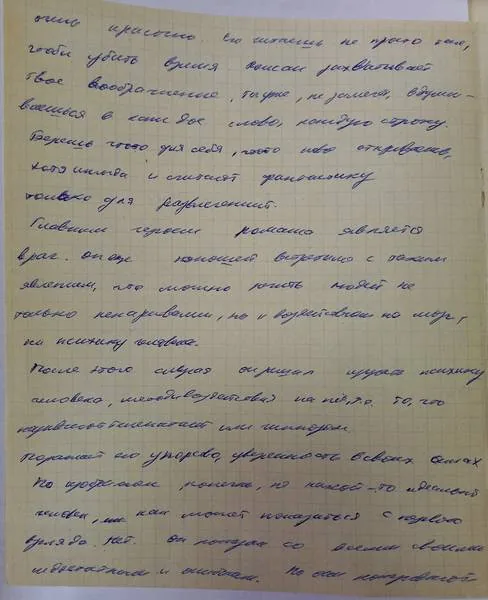 очень красочно. Его читаешь не просто так,
чтобы убить время роман захватывает
твое воображение, ты уже, не замечая, вдумы-
ваешься в каждое слово, каждую строку.
Берешь что-то для себя, что-то новое открываешь,
хотя иногда и считают фантастику
только для развлечения.
Главным героем романа является
врач. он еще юношей встретился с таким
явлением, что можно лечить людей не
только лекарствами, но и воздействием на мозг,
на психику человека.
После этого случая он решил изучать психику
человека, методы воздействия на неё, т.е. то, что
называют гипнотизмом или
поражает его упорство, уверенность в своих силах
Но профессион, конечно, не какой-то идеальный
человек, как может показаться с первого
взгляда. Нет. Он показан со всеми своими
недостатками и ошибками. Но они